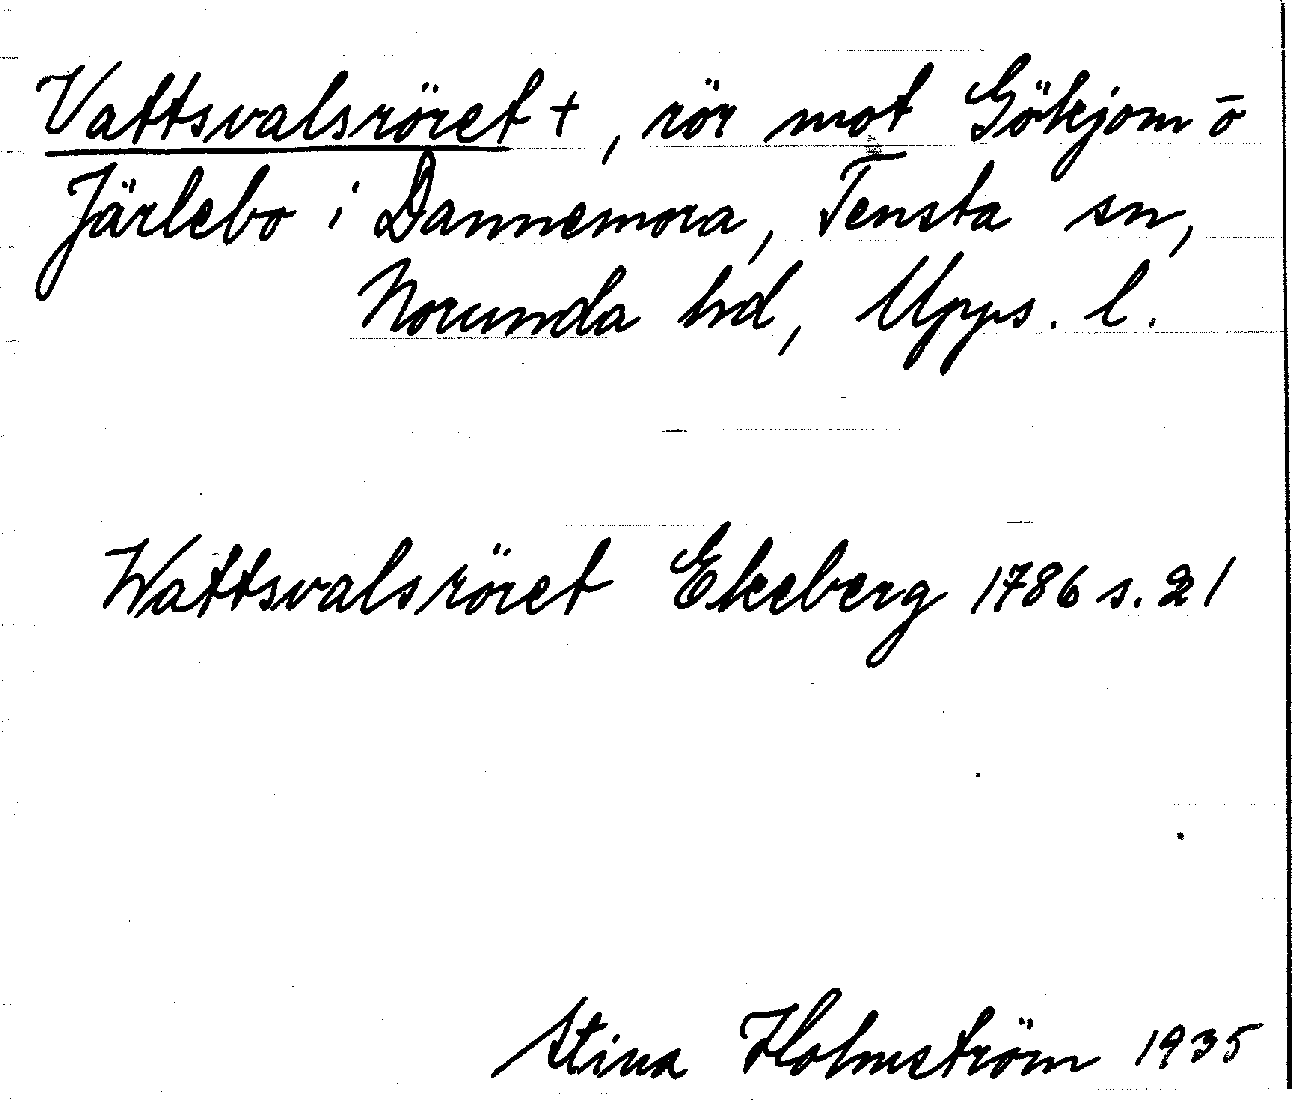 Vattsvalsröret +, rör mot Gökjom o
Järlebo i Dannemora, Tensta sn,
Norunda hd, Upps. l.
Wattsvalsröret Ekeberg 1786 s. 21
Stina Holmström 1935